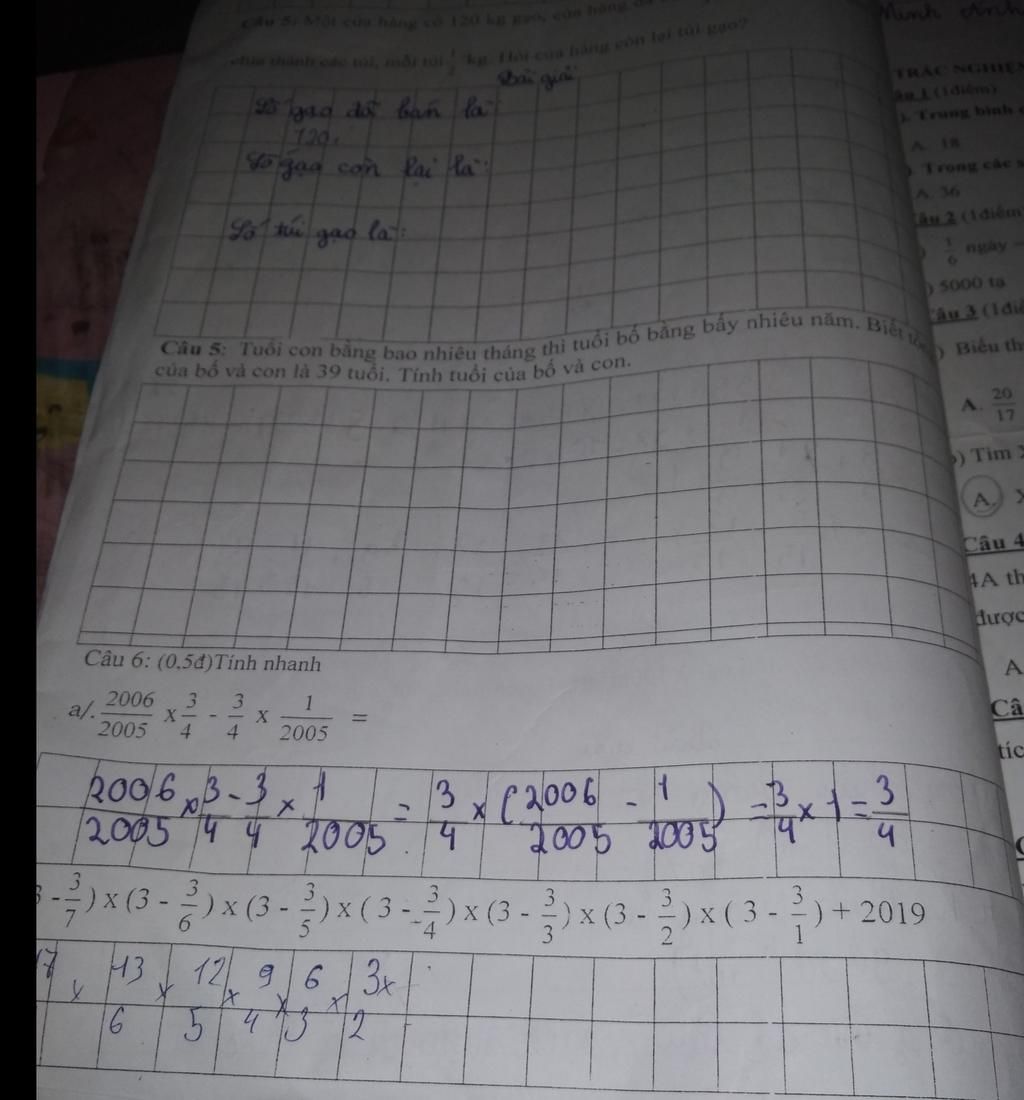 Câu 5: Một cửa hàng có 120 kg gạo, cửa hàng
chia thành các túi, mỗi túi kg. Hỏi cửa hàng còn lại túi gạo?
Bài giải
Số gạo đã bán là
120
Số gạo còn lại là:
Số túi gạo là:
Câu 5: Tuổi con bằng bao nhiêu tháng thì tuổi bố bằng bấy nhiêu năm. Biết
của bố và con là 39 tuổi. Tính tuổi của bố và con.
Câu 6: (0,5đ)Tính nhanh
a/. 2006/2005 x 3/4 - 3/4 x 1/2005 =
2006/2005 x 3/4 - 3/4 x 1/2005 = 3/4 x (2006/2005 - 1/2005) = 3/4 x 1 = 3/4
- 3/7) x (3 - 3/6) x (3 - 3/5) x (3 - 3/4) x (3 - 3/3) x (3 - 3/2) x (3 - 3/1) + 2019
x 13/6 x 12/5 x 9/4 x 6/3 x 3/2 x
Minh Anh
TRẮC NGHIỆM
1 (1điểm)
Trung bình
A. 18
Trong các
A. 36
Câu 2 (1điểm
1/6 ngày
) 5000 tạ
Câu 3 (1điể
) Biểu th
A. 20/17
) Tìm
A.
Câu 4
4A th
được
A
Câ
tíc